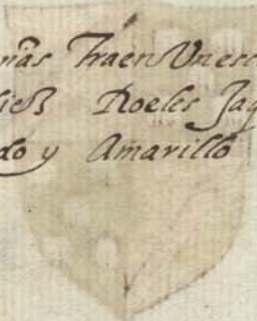 mãs Traen Vn esc
diez Roeles Jaq
do y Amarillo